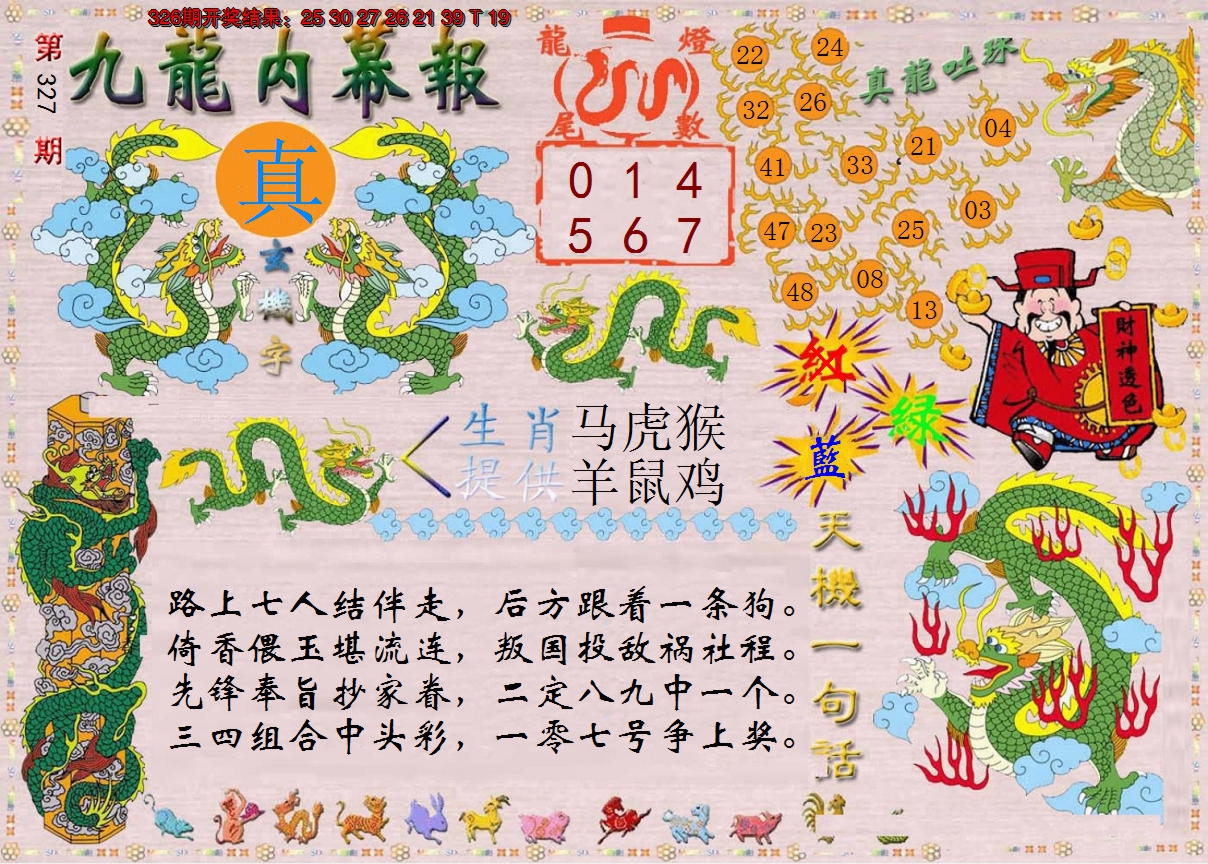 326期开奖结果：25 30 27 26 21 39 T 19
第327期
九龍内幕報
真
玄機字
龍燈
尾數
0 1 4
5 6 7
真龍吐珠
22
24
32
26
41
33
21
04
47
23
25
03
48
08
13
財神透色
紅
綠
藍
生肖提供
马虎猴
羊鼠鸡
路上七人结伴走，后方跟着一条狗。
倚香偎玉堪流连，叛国投敌祸社程。
先锋奉旨抄家眷，二定八九中一个。
三四组合中头彩，一零七号争上奖。
天機一句話